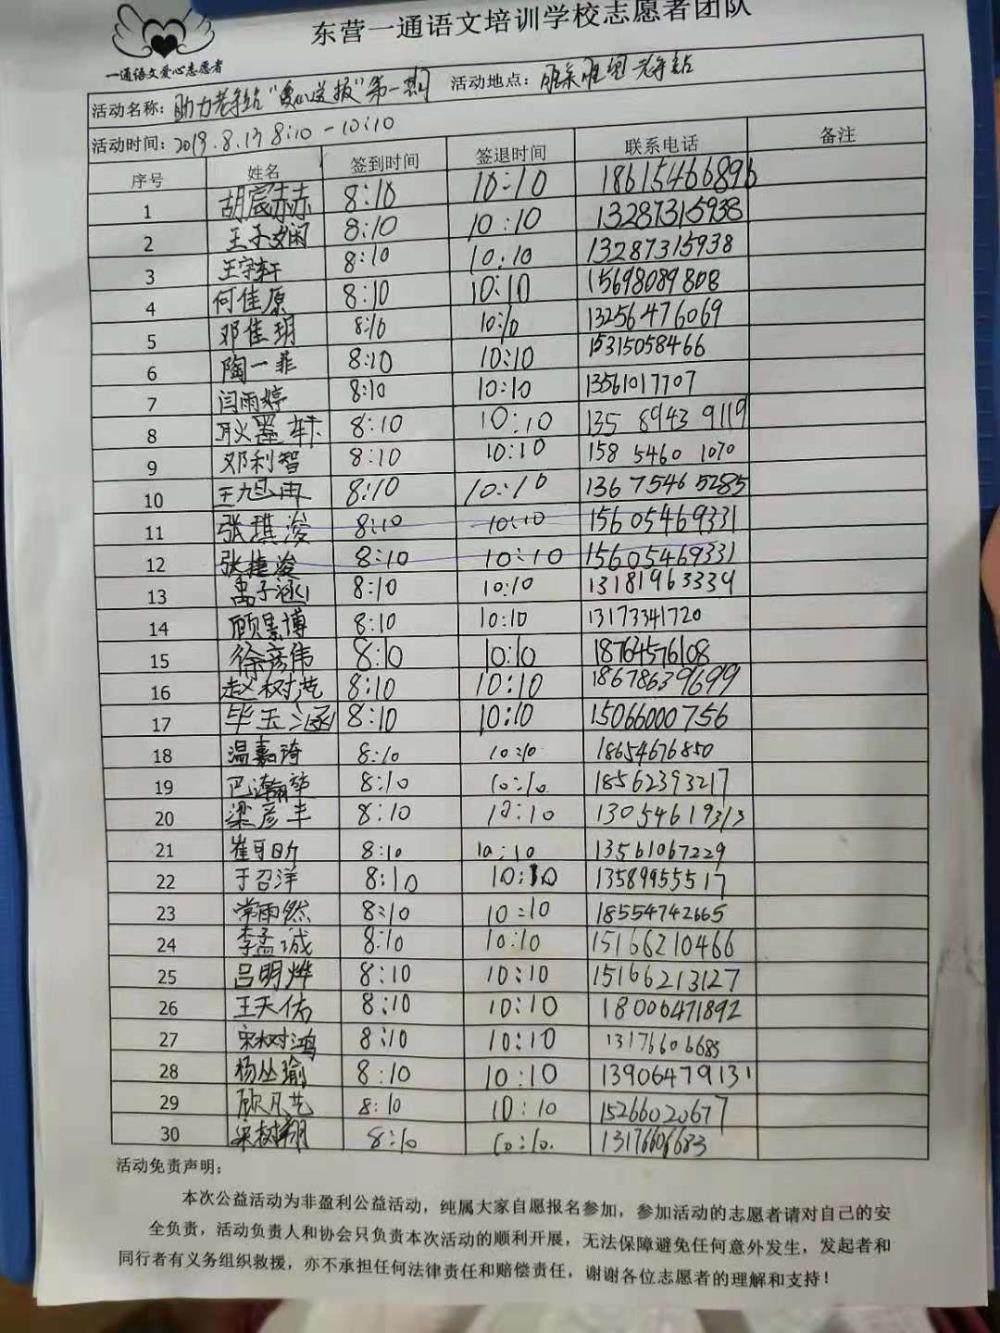 东营一通语文培训学校志愿者团队
一通语文爱心志愿者
活动名称：助力老年站"爱心送报"第一期 活动地点：
活动时间：2019.8.17 8:10-10:10
序号 姓名 签到时间 签退时间 联系电话 备注
1 胡宸赫 8:10 10:10 18615466896
2 王子娴 8:10 10:10 13287315938
3 王宇轩 8:10 10:10 13287315938
4 何佳原 8:10 10:10 15698089808
5 邓佳玥 8:10 10:10 13256476069
6 陶一菲 8:10 10:10 15315058466
7 闫雨婷 8:10 10:10 13561017707
8 耿墨轩 8:10 10:10 135 8943 9119
9 邓利智 8:10 10:10 158 5460 1070
10 王旭冉 8:10 10:10 136 7546 5285
11 张琪浚 8:10 10:10 15605469331
12 张捷浚 8:10 10:10 15605469331
13 禹子涵 8:10 10:10 13181963339
14 顾景博 8:10 10:10 13173341720
15 徐彦伟 8:10 10:10 18764576108
16 赵树艺 8:10 10:10 18678639699
17 毕玉涵 8:10 10:10 15066000756
18 温嘉琦 8:10 10:10 18654676850
19 巴瀚 8:10 10:10 18562393217
20 梁彦丰 8:10 10:10 13054619313
21 崔可昕 8:10 10:10 13561067229
22 于召洋 8:10 10:10 13589955517
23 常雨然 8:10 10:10 18554742665
24 李孟诚 8:10 10:10 15166210466
25 吕明烨 8:10 10:10 15166213127
26 王天佑 8:10 10:10 18006471892
27 宋树鸿 8:10 10:10 13176606683
28 杨丛瑜 8:10 10:10 13906479131
29 顾凡艺 8:10 10:10 15266020677
30 宋树翔 8:10 10:10. 13176606683
活动免责声明：
本次公益活动为非盈利公益活动，纯属大家自愿报名参加，参加活动的志愿者请对自己的安
全负责，活动负责人和协会只负责本次活动的顺利开展，无法保障避免任何意外发生，发起者和
同行者有义务组织救援，亦不承担任何法律责任和赔偿责任，谢谢各位志愿者的理解和支持！